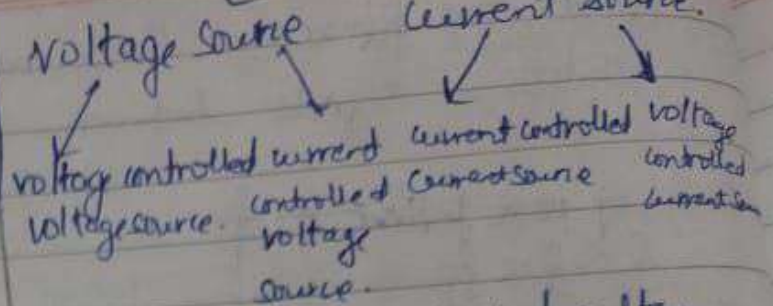 Voltage source
Current source.
voltage controlled
voltage source.
current
controlled
voltage
source.
current controlled
Current source
voltage
controlled
current